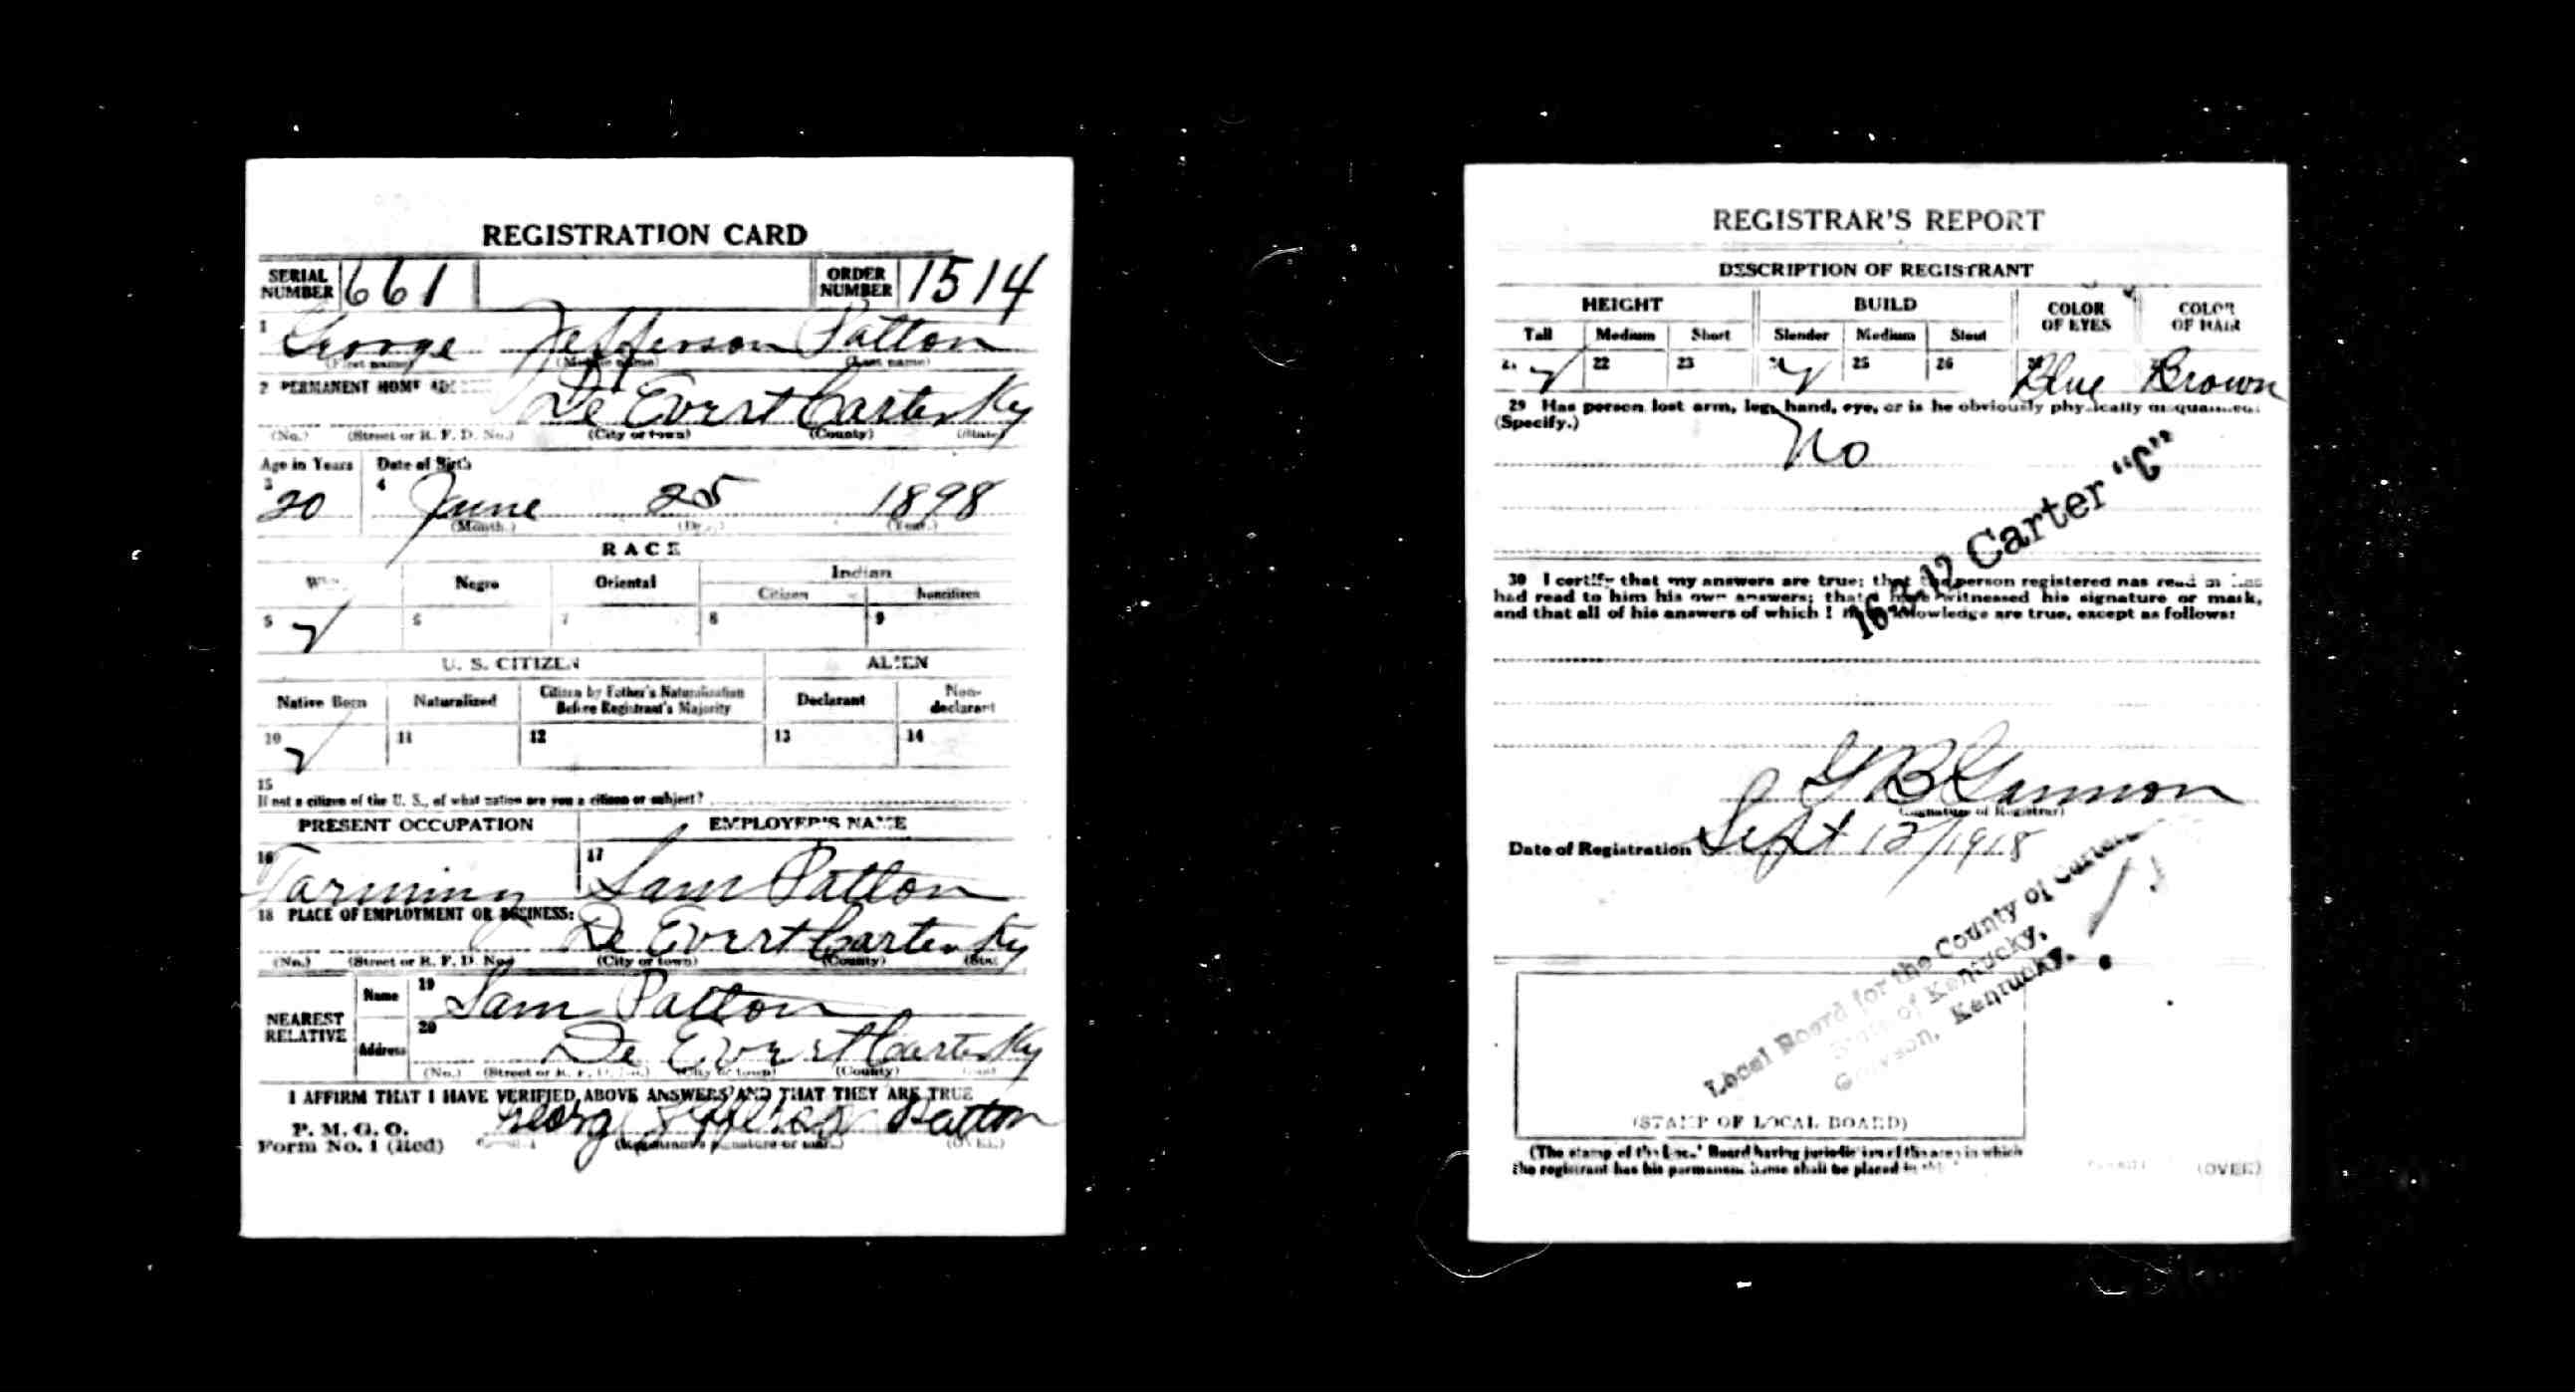 REGISTRATION CARD
SERIAL NUMBER 661 ORDER NUMBER 1514
1 George Jefferson Patton
(First name) (Middle name) (Last name)
2 PERMANENT HOME
De Evert Carter Ky
(No.) (Street or R. F. D. No.) (City or town) (County) (State)
Age in Years Date of Birth
3 20 4 June 25 1898
(Month.) (Day.) (Year.)
RACE
White Negro Oriental Indian
Citizen Noncitizen
5 ✓ 6 7 8 9
U. S. CITIZEN ALIEN
Native Born Naturalized Citizen by Father's Naturalization Before Registrant's Majority Declarant Non-declarant
10 ✓ 11 12 13 14
15
If not a citizen of the U. S., of what nation are you a citizen or subject?
PRESENT OCCUPATION EMPLOYER'S NAME
16 Farming 17 Sam Patton
18 PLACE OF EMPLOYMENT OR BUSINESS:
De Evert Carter Ky
(No.) (Street or R. F. D. No.) (City or town) (County) (State)
NEAREST RELATIVE Name 19 Sam Patton
Address 20 De Evert Carter Ky
(No.) (Street or R. F. D. No.) (City or town) (County) (State)
I AFFIRM THAT I HAVE VERIFIED ABOVE ANSWERS AND THAT THEY ARE TRUE
P. M. G. O.
Form No. 1 (Red) George Jefferson Patton
(Registrant's signature or mark) (OVER)
REGISTRAR'S REPORT
DESCRIPTION OF REGISTRANT
HEIGHT BUILD COLOR OF EYES COLOR OF HAIR
Tall Medium Short Slender Medium Stout
21 ✓ 22 23 24 ✓ 25 26 Blue Brown
29 Has person lost arm, leg, hand, eye, or is he obviously physically disqualified?
(Specify.)
No
16-3-12 Carter "C"
30 I certify that my answers are true; that the person registered has read or has
had read to him his own answers; that I have witnessed his signature or mark,
and that all of his answers of which I have knowledge are true, except as follows:
G B Gannon
(Signature of Registrar)
Date of Registration Sept 12/1918
Local Board for the County of Carter,
State of Kentucky,
Grayson, Kentucky.
(STAMP OF LOCAL BOARD)
(The stamp of the Local Board having jurisdiction of the area in which
the registrant has his permanent home shall be placed in
(OVER)